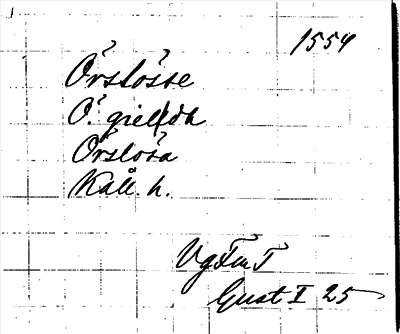 1554
Örslösse
Ö. gielldh
Örslösa
Kåll. h.
VgFmT
Gust I 25